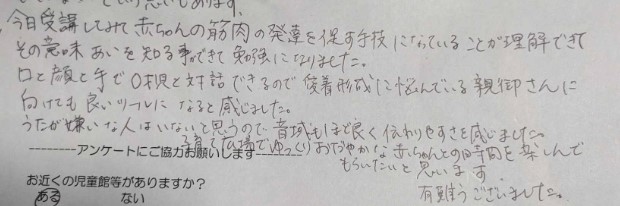 今日受講してみて赤ちゃんの筋肉の発達を促す手技になっていることが理解できて
その意味あいを知る事ができて勉強になりました。
口と顔と手で0才児と対話できるので愛着形成に悩んでいる親御さんに
向けても良いツールになると感じました。
うたが嫌いな人はいないと思うので音域もほど良く伝わりやすさを感じました。
子育て広場でゆっくりおだやかな赤ちゃんとの時間を楽しんで
--------アンケートにご協力お願いします--------
もらいたいと思います。
お近くの児童館等がありますか?
有難うございました。
ある ない